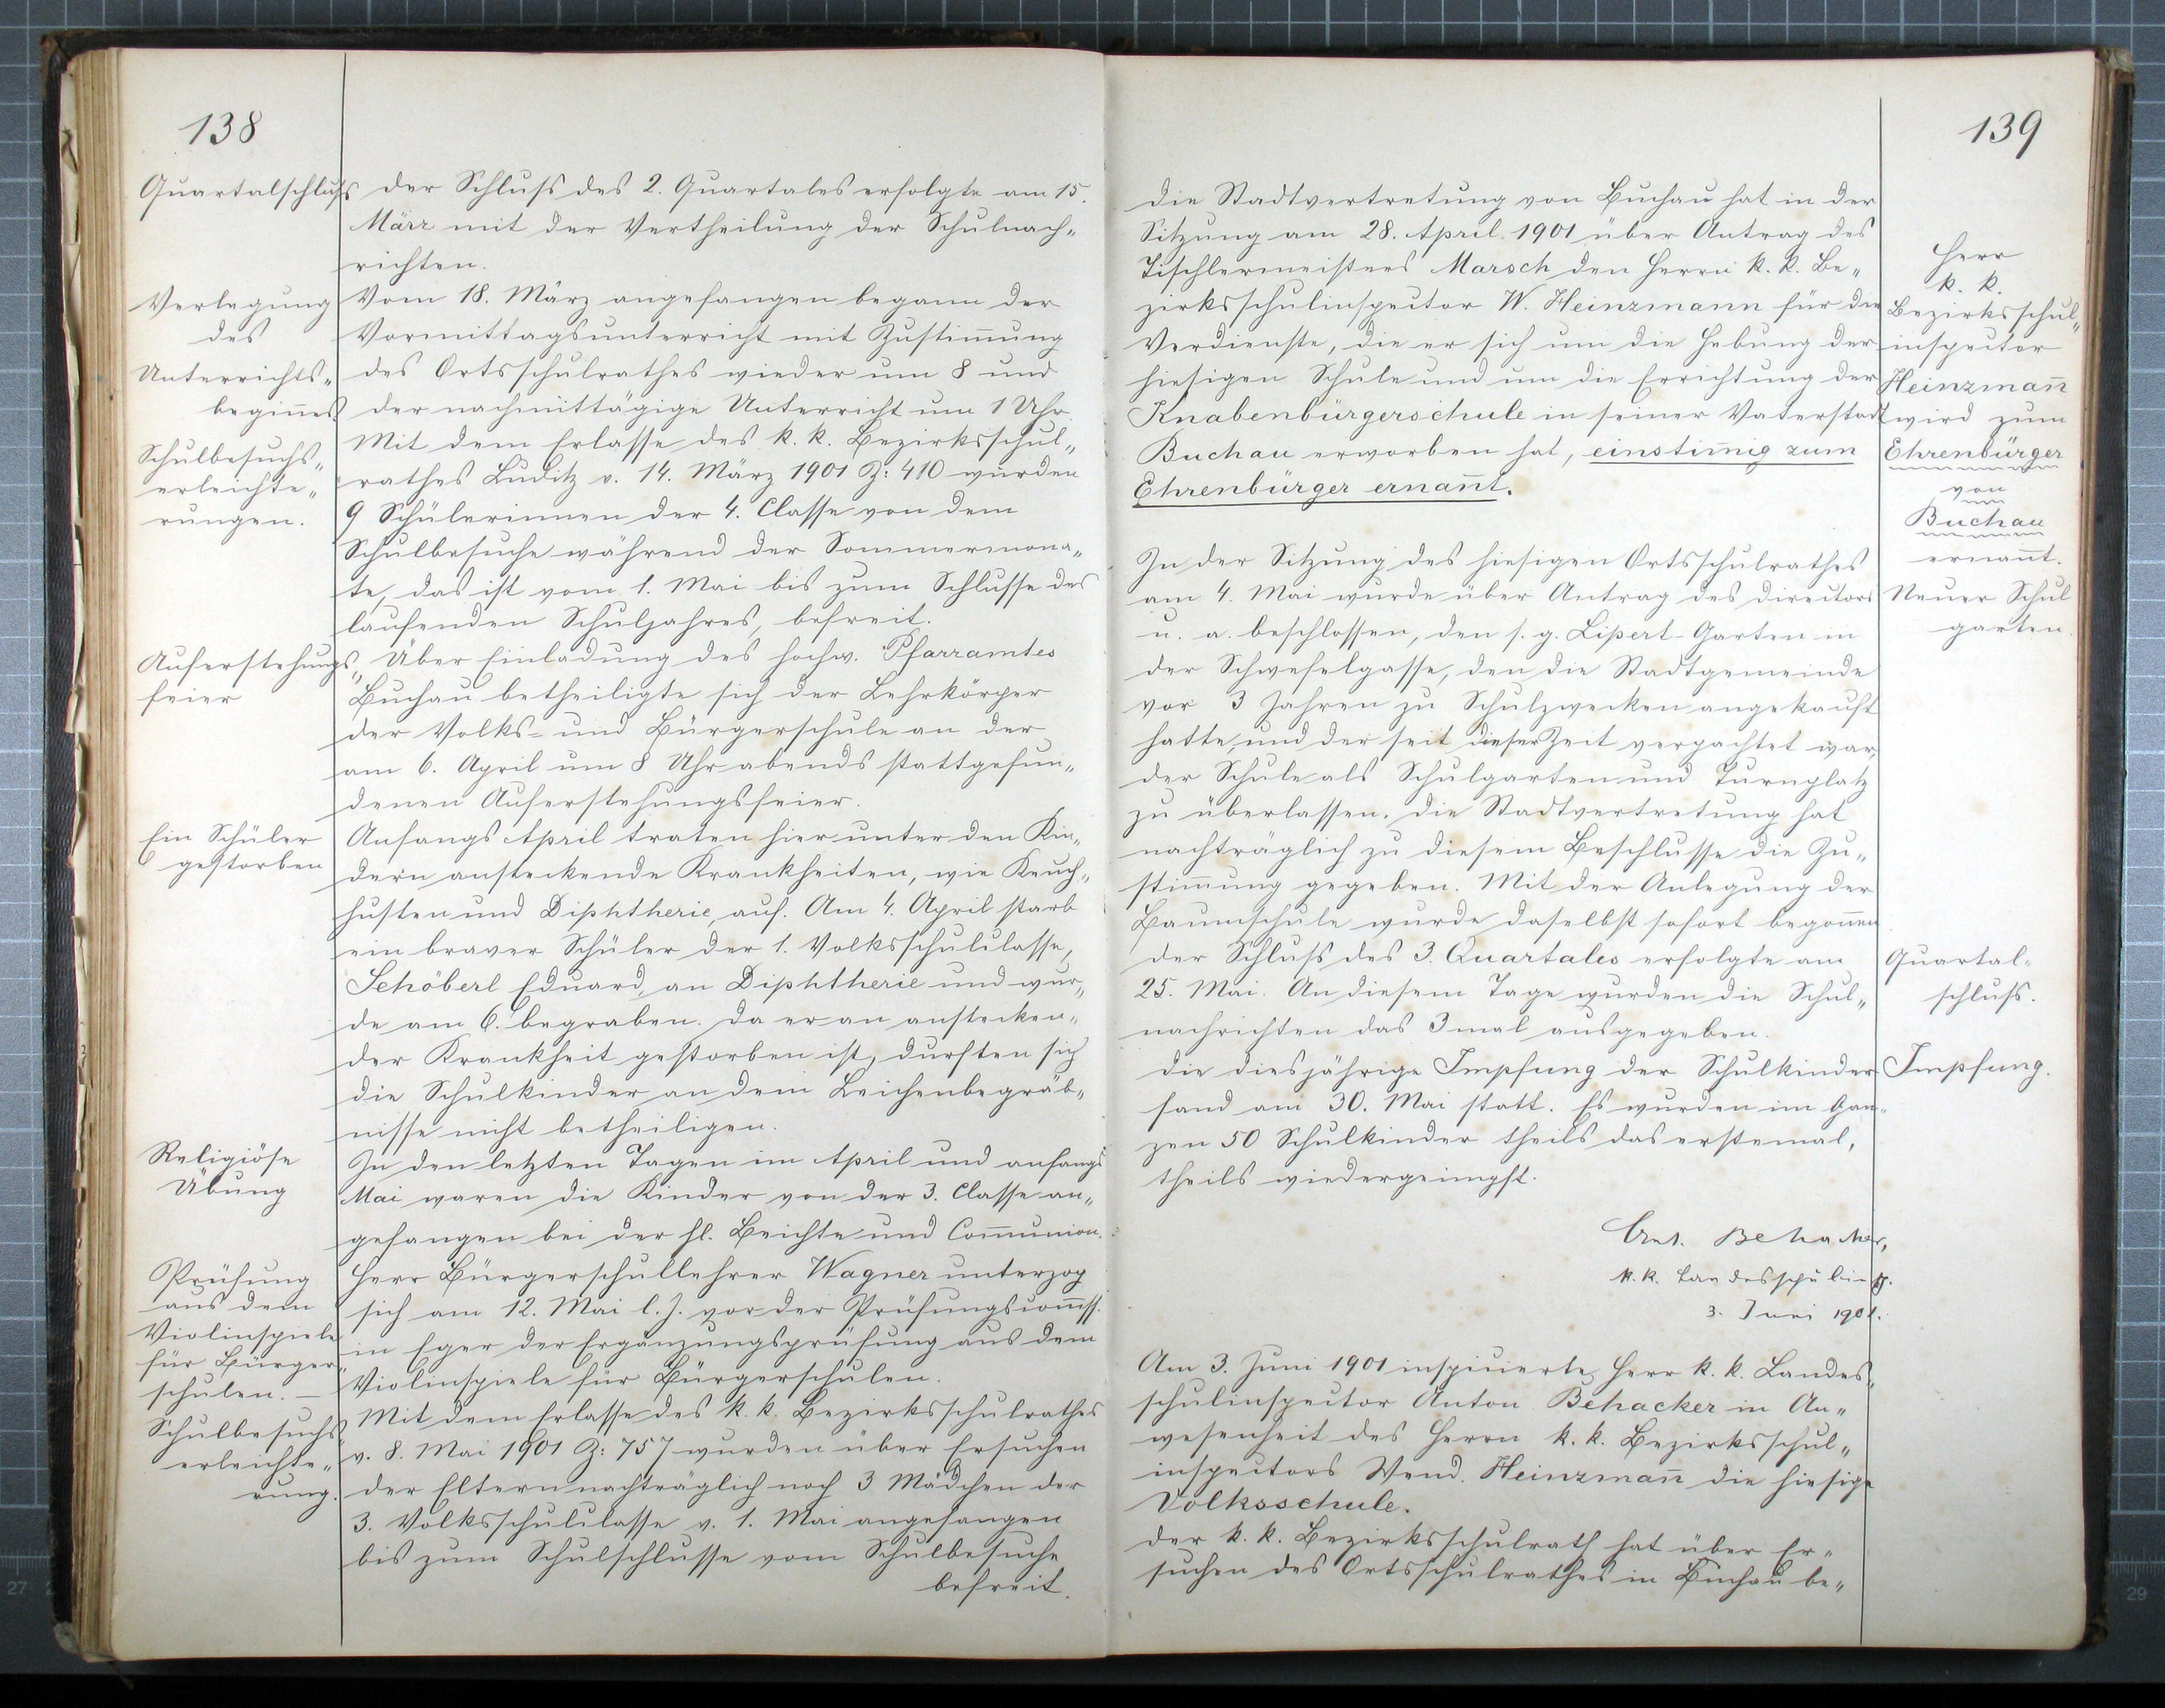 138
Quartalschluſs
Der Schluſs des 2. Quartales erfolgte am 15.
März mit der Vertheilung der Schulnach„
richten.
Verlegung
des
Unterrichts„
begin̄es
Vom 18. März angefangen begann der
Vormittagsunterricht mit Zustim̄ung
des Ortsschulrathes wieder um 8 und
der nachmittägige Unterricht um 1 Uhr.
Schulbesuchs„
erleichte„
rungen.
Mit dem Erlasse des k. k. Bezirksschul„
rathes Luditz v. 14. März 1901 Z: 410 wurden
9 Schülerinnen der 4. Classe von dem
Schulbesuche während der Sommermona„
te, das ist vom 1. Mai bis zum Schlusse des
laufenden Schuljahres, befreit.
Auferstehungs„
feier
Über Einladung des hochw. Pfarramtes
Buchau betheiligte sich der Lehrkörper
der Volks- und Bürgerschule an der
am 6. April um 8 Uhr abends stattgefun„
denen Auferstehungsfeier.
Ein Schüler
gestorben
Anfangs April traten hier unter den Kin„
dern ansteckende Krankheiten, wie Keuch„
husten und Diphtherie, auf. Am 4. April starb
ein braver Schüler der 1. Volksschulclasse,
Schöberl Eduard, an Diphtherie und wur„
de am 6. begraben. Da er an anstecken„
der Krankheit gestorben ist, durften sich
die Schulkinder an dem Leichenbegräb„
nisse nicht betheiligen.
Religiöse
Übung
In den letzten Tagen im April und anfangs
Mai waren die Kinder von der 3. Classe an„
gefangen bei der hl. Beichte und Com̄union.
Prüfung
aus dem
Violinspiele
für Bürger„
schulen. —
Herr Bürgerschullehrer Wagner unterzog
sich am 12. Mai l. J. vor der Prüfungscom̄ss.
in Eger der Ergänzungsprüfung aus dem
Violinspiele für Bürgerschulen.
Schulbesuchs„
erleichte„
rung.
Mit dem Erlasse des k. k. Bezirksschulrathes
v. 8. Mai 1901 Z: 757 wurden über Ersuchen
der Eltern nachträglich noch 3 Mädchen der
3. Volksschulclasse v. 1. Mai angefangen
bis zum Schulschlusse vom Schulbesuche
befreit.
139
Die Stadtvertretung von Buchau hat in der
Sitzung am 28. April 1901 über Antrag des
Tischlermeisters Marsch den Herrn k. k. Be„
zirksschulinspector W. Heinzmann für die
Verdienste, die er sich um die Hebung der
hiesigen Schule und um die Errichtung der
Knabenbürgerschule in seiner Vaterstadt
Buchau erworben hat, einstim̄ig zum
Ehrenbürger ernan̄t.
Herr
k. k.
Bezirksschul„
inspector
Heinzman̄
wird zum
Ehrenbürger
von
Buchau
ernan̄t.
In der Sitzung des hiesigen Ortsschulrathes
am 4. Mai wurde über Antrag des Directors
u. a. beschlossen, den s. g. Lipert-Garten in
der Schwefelgasse, den die Stadtgemeinde
vor 3 Jahren zu Schulzwecken angekauft
hatte, und der seit dieser Zeit verpachtet war,
der Schule als Schulgarten und Turnplatz
zu überlassen. Die Stadtvertretung hat
nachträglich zu diesem Beschlusse die Zu„
stim̄ung gegeben. Mit der Anlegung der
Baumschule wurde daselbst sofort begon̄en
Neuer Schul
garten.
Der Schluſs des 3. Quartales erfolgte am
25. Mai. An diesem Tage wurden die Schul„
nachrichten das 3mal ausgegeben.
Quartal-
schluſs.
Die diesjährige Impfung der Schulkinder
fand am 30. Mai statt. Es wurden im Gan„
zen 50 Schulkinder theils das erstemal,
theils wiedergeimpft.
Impfung.
Ant. Behacker,
k. k. Landesschulinsp.
3. Juni 1901.
Am 3. Juni 1901 inspicierte Herr k. k. Landes„
schulinspector Anton Behacker in An„
wesenheit des Herrn k. k. Bezirksschul„
inspectors Wend. Heinzman̄ die hiesige
Volksschule.
Der k. k. Bezirksschulrath hat über Er„
suchen des Ortsschulrathes in Buchau be„
27
29